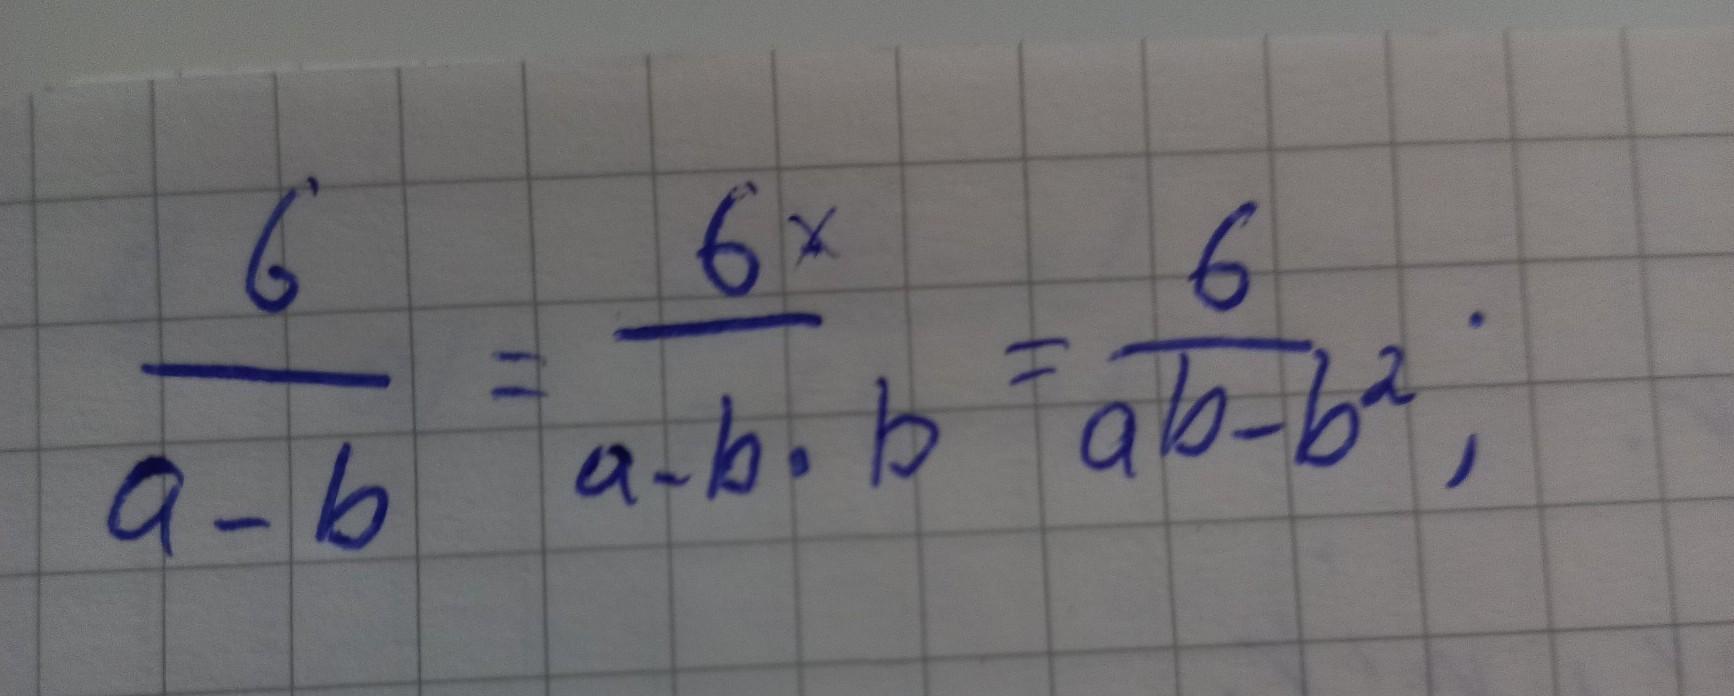 6/(a-b) = 6x/(a-b·b) = 6/(ab-b²);